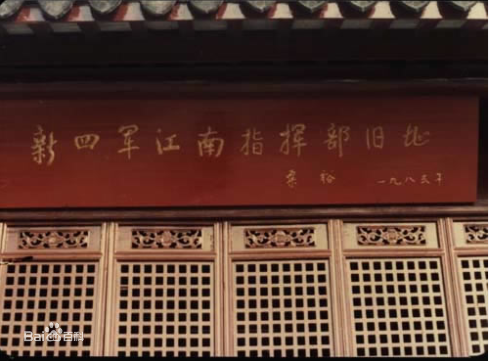 新四军江南指挥部旧址
粟裕 一九八三年
Bai百科